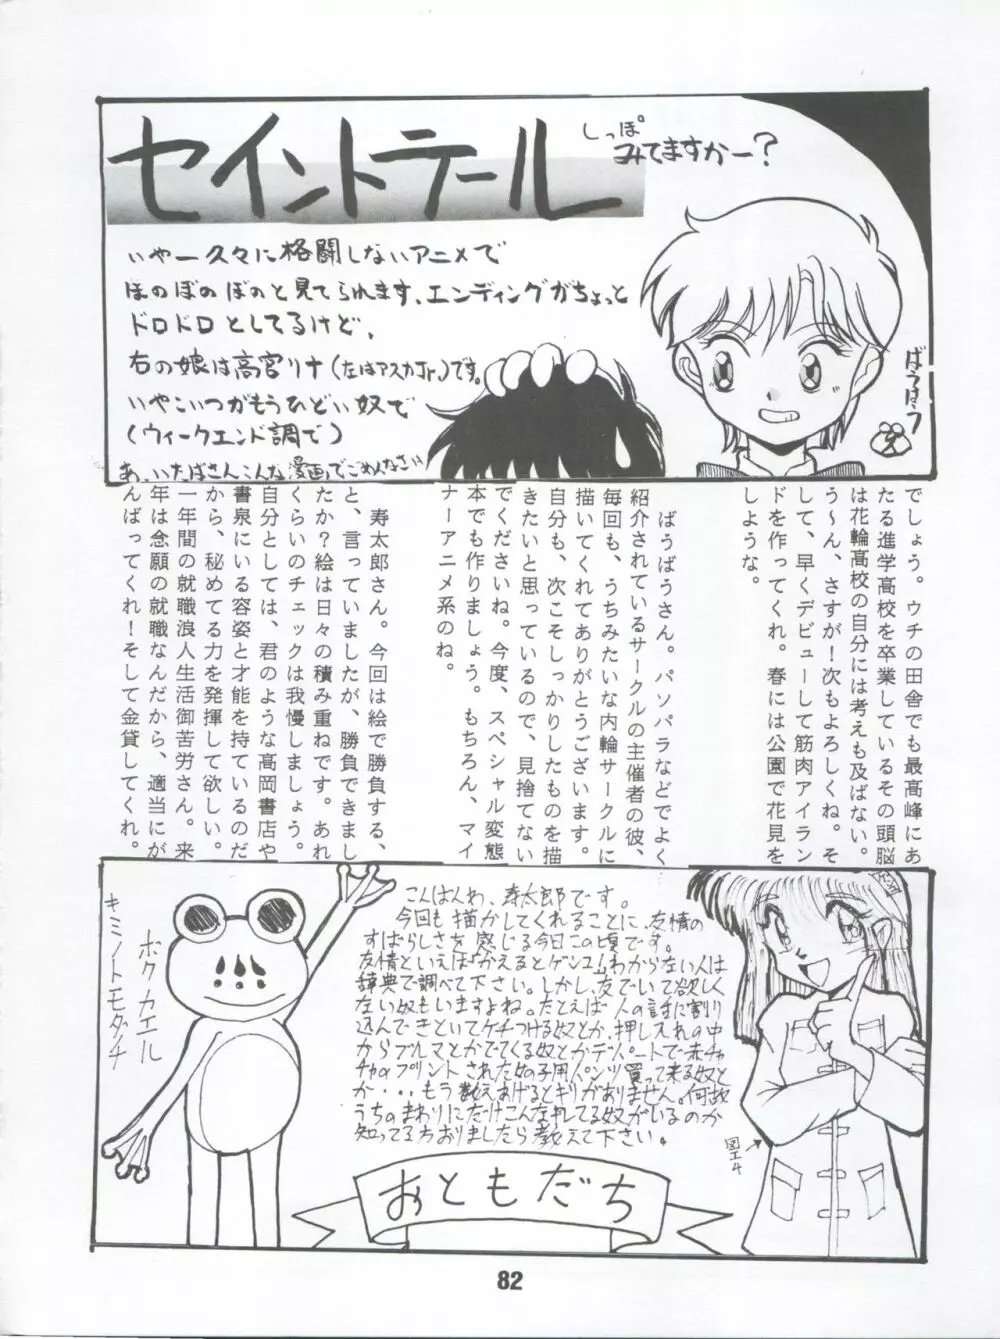 セイントテール
しっぽ
みてますかー?
いやー久々に格闘しないアニメで
ほのぼのぼのと見てられます、エンディングがちょっと
ドロドロとしてるけど、
右の娘は高宮リナ(左はアスカJr.)です。
いやこいつがもうひどい奴で
(ウィークエンド調で)
あ、いたばさんこんな漫画でごめんなさい
ばうばう
でしょう。ウチの田舎でも最高峰にあ
たる進学高校を卒業しているその頭脳
は花輪高校の自分には考えも及ばない。
う~ん、さすが!次もよろしくね。そ
して、早くデビューして筋肉アイラン
ドを作ってくれ。春には公園で花見を
しような。
ばうばうさん。パソパラなどでよく
紹介されているサークルの主催者の彼、
毎回も、うちみたいな内輪サークルに
描いてくれてありがとうございます。
自分も、次こそしっかりしたものを描
きたいと思っているので、見捨てない
でくださいね。今度、スペシャル変態
本でも作りましょう。もちろん、マイ
ナーアニメ系のね。
寿太郎さん。今回は絵で勝負する、
と、言っていましたが、勝負できまし
たか?絵は日々の積み重ねです。あれ
くらいのチェックは我慢しましょう。
自分としては、君のような高岡書店や
書泉にいる容姿と才能を持ているのだ
から、秘めてる力を発揮して欲しい。
一年間の就職浪人生活御苦労さん。来
年は念願の就職なんだから、適当にが
んばってくれ!そして金貸してくれ。
ボクカエル
キミノトモダッチ
こんばんわ、寿太郎です。
今回も描かしてくれることに、友情の
すばらしさを感じる今日この頃です。
友情といえば「かえるとゲンユ」わからない人は
辞典で調べて下さい。しかし、友でいて欲しく
ない奴もいますよね。たとえば人の話に割り
込んできといてケチつける奴とか、押し入れの中
からブルマとかでてくる奴とかデパートで赤チャ
チャのプリントされた女の子用パンツ買って来る奴と
か・・・もう数えあげるとキリがありません。何故
うちのまわりにだけこんな 奴がいるのか
知ってる方おりましたら教えて下さい。
図工4
おともだち
82